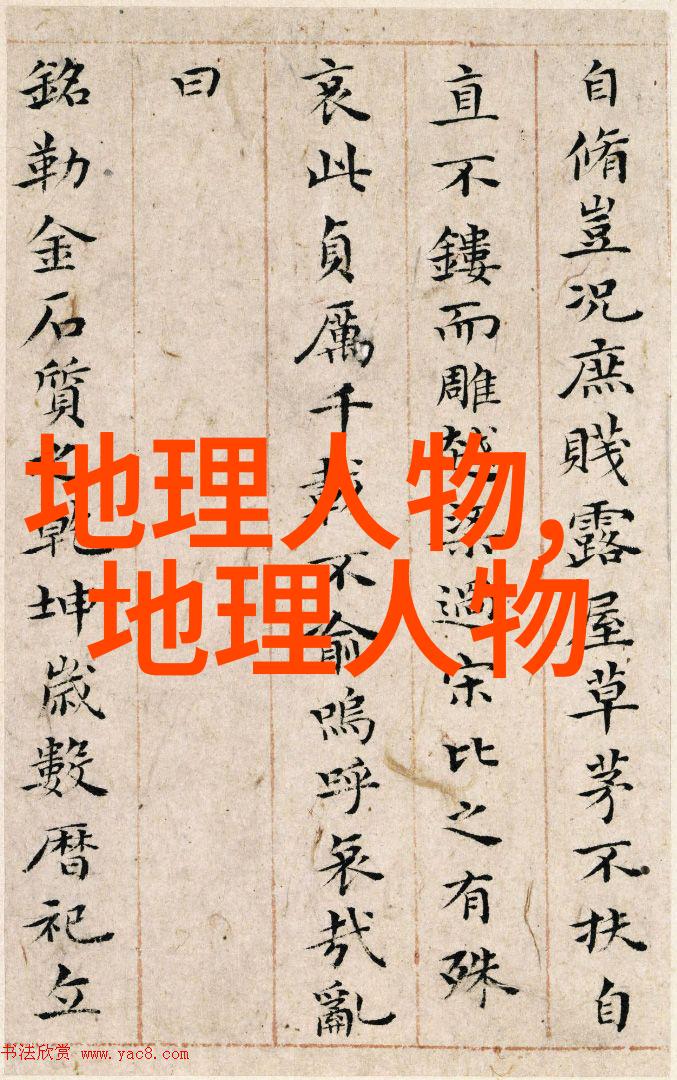 自脩豈況庶賤露屋草茅不扶自
直不鏤而雕越梁過宋比之有殊
哀此貞厲千載不俞嗚呼哀哉亂
曰
銘勒金石質之乾坤歲數暦祀立
地理人物,
地理人物
书法欣赏 www.yac8.com